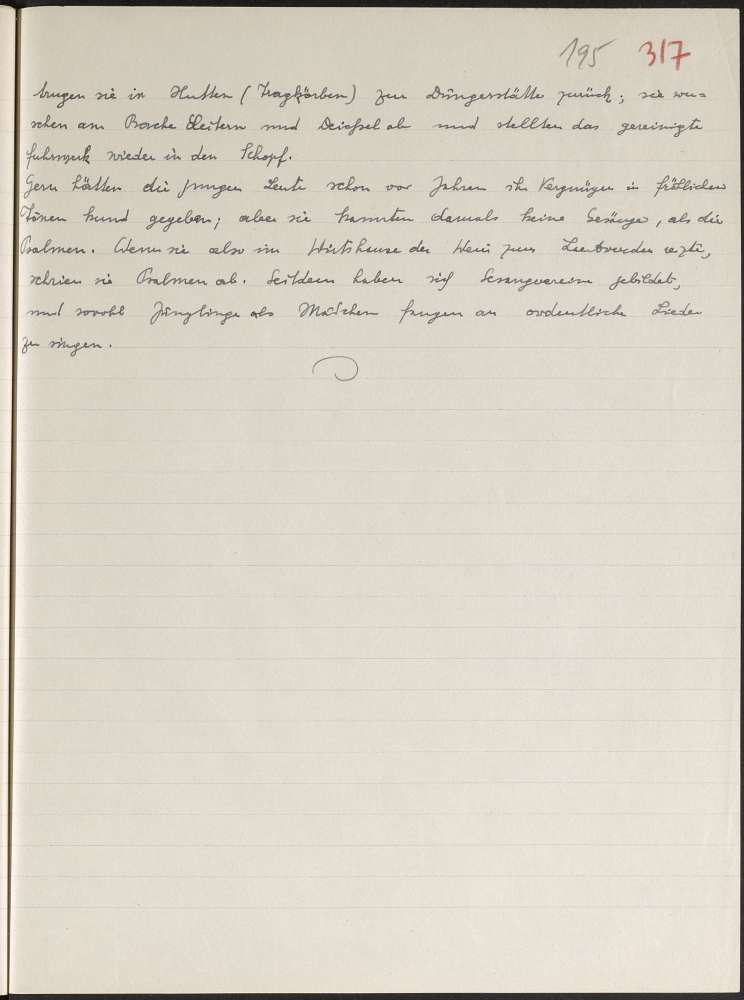 195 317
trugen sie in Hutten (Tragkörben) zur Düngerstätte zurück; sie wu-
schen am Bache Leitern und Deichsel ab und stellten das gereinigte
Fuhrwerk wieder in den Schopf.
Gern hätten die jungen Leute schon vor Jahren ihr Vergnügen in fröhlichen
Tönen kund gegeben; aber sie kannten damals keine Gesänge, als die
Psalmen. Wenn sie also im Wirtshause der Wein zum Lautwerden reizte,
schrien sie Psalmen ab. Seitdem haben sich Gesangvereine gebildet,
und sowohl Jünglinge als Mädchen fangen an ordentliche Lieder
zu singen.